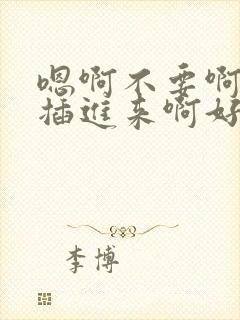 嗯啊不要啊
插进来啊好
李博